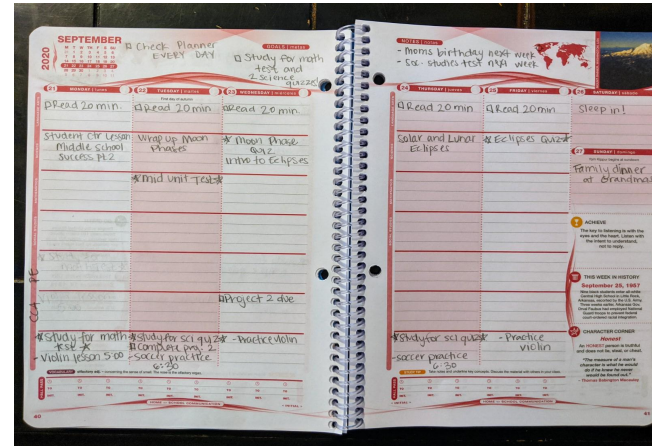 2020
SEPTEMBER
□ Check Planner
EVERY DAY
GOALS | metas
□ Study for math
test and
2 science
quizzes!
21 MONDAY | lunes
22 TUESDAY | martes
23 WEDNESDAY | miércoles
First day of autumn
□Read 20 min.
□Read 20 min.
□Read 20 min.
Student Ctr Lesson
Middle school
success pt.2
Wrap up Moon
Phases
☆ Moon Phase
Quiz
Intro to Eclipses
☆Mid Unit Test☆
CCA PE
□Project 2 due
☆Study for math
test ☆
-Violin lesson 5:00
☆Study for sci quiz☆
-soccer practice
6:30
-Practice violin
VOCABULARY
HOME and SCHOOL COMMUNICATION
60
NOTES | notas
- Moms birthday next week
- Soc. studies test next week
24 THURSDAY | jueves
25 FRIDAY | viernes
26 SATURDAY | sábado
□Read 20 min.
□Read 20 min.
Sleep in!
Solar and Lunar
Eclipses
☆Eclipses Quiz☆
27 SUNDAY | domingo
Yom Kippur begins at sundown
Family dinner
at Grandmas
ACHIEVE
The key to listening is with the
eyes and the heart. Listen with
the intent to understand,
not to reply.
THIS WEEK IN HISTORY
September 25, 1957
Nine black students enter all-white
Central High School in Little Rock,
Arkansas, escorted by the U.S. Army.
Three weeks earlier, Arkansas Gov.
Orval Faubus had employed National
Guard troops to prevent federal
court-ordered racial integration.
CHARACTER CORNER
Honest
An HONEST person is truthful
and does not lie, steal, or cheat.
"The measure of a man's
character is what he would
do if he knew he never
would be found out."
- Thomas Babington Macaulay
☆Study for sci quiz☆
-soccer practice
6:30
- Practice
violin
HOME and SCHOOL COMMUNICATION
61